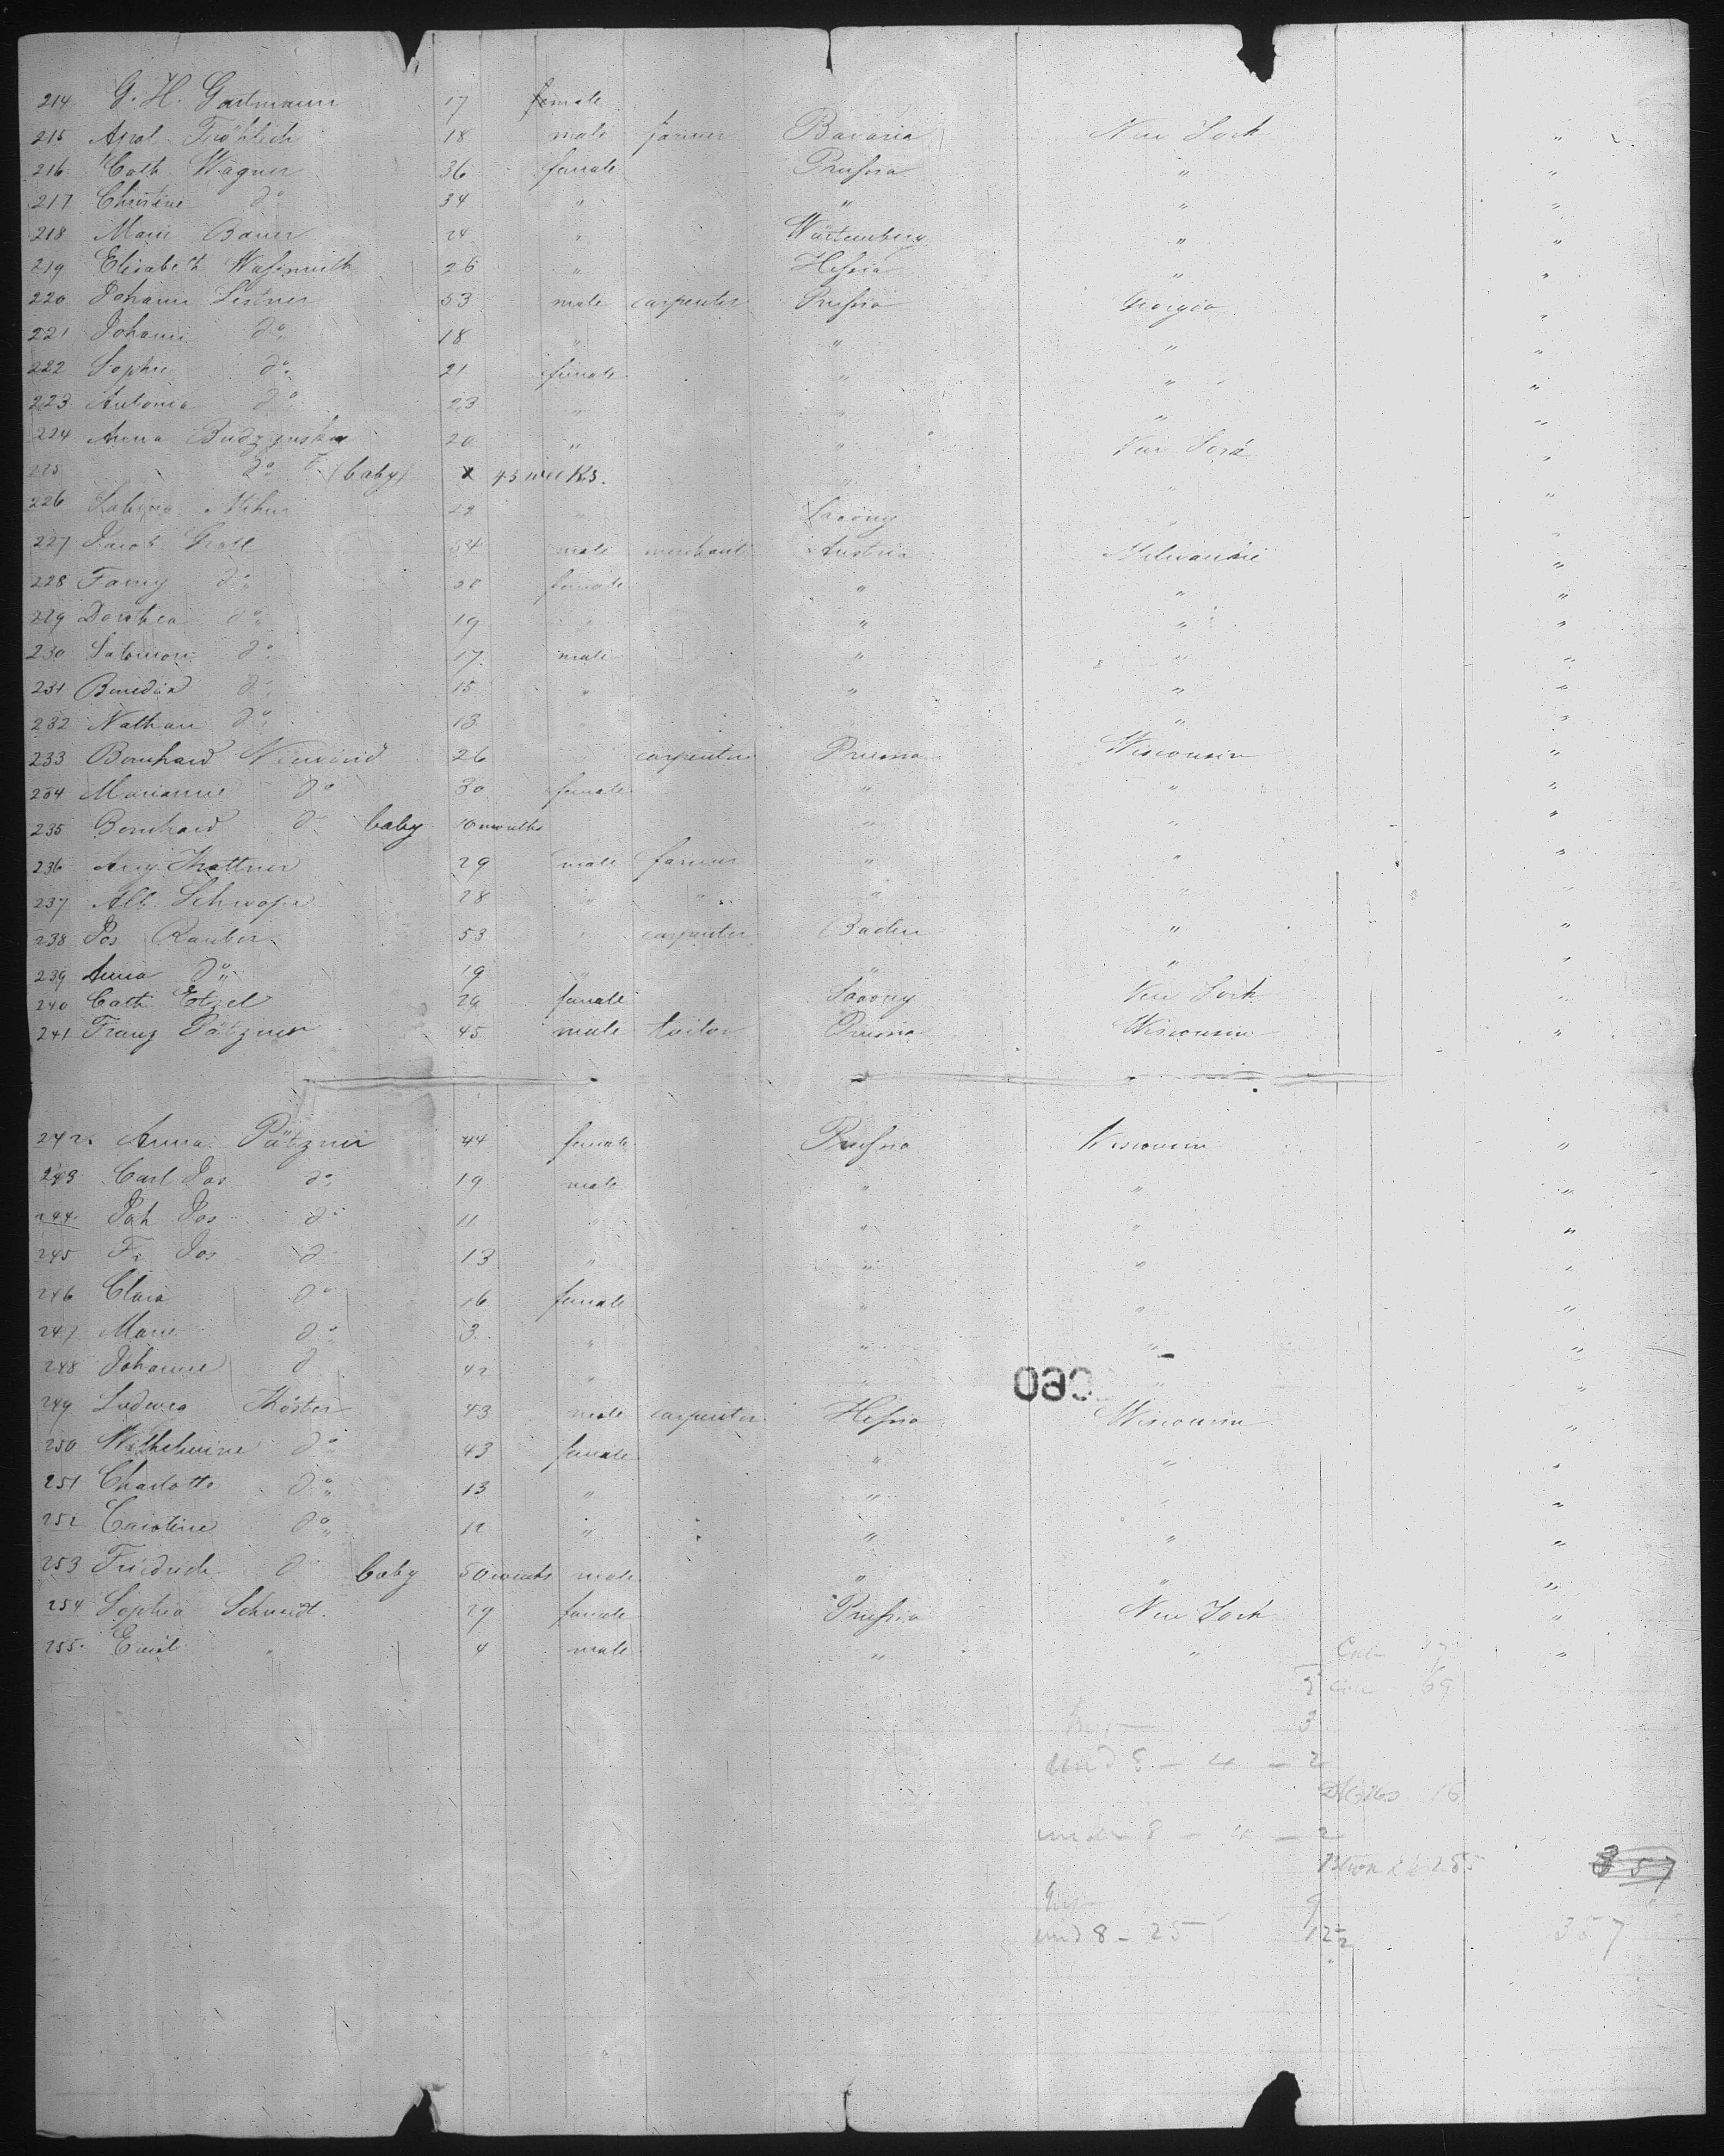 214 G. H. Gartmann 17 female
215 Apol Fröhlich 18 male farmer Bavaria New York "
216 Cath Wagner 36 female Prussia " "
217 Christine do 34 " " " "
218 Marie Bauer 24 " Würtemberg " "
219 Elisabeth Waßmuth 26 " Hessia " "
220 Johann Lestner 53 male carpenter Prussia Georgia "
221 Johann do 18 " " " "
222 Sophie do 21 female " " "
223 Antonia do 23 " " " "
224 Anna 20 " " New York "
225 do (baby) 45 weeks. " " "
226 22 " Saxony " "
227 Jacob 54 male merchant Austria Milwaukie "
228 Fanny do 50 female " " "
229 Dorothea do 19 " " " "
230 Salomon do 17 male " " "
231 do 15 " " " "
232 Nathan do 13 " "
233 Bernhard 26 " carpenter Prussia Wisconsin "
234 Marianne do 30 female " " "
235 Bernhard do baby 10 months " " "
236 Aug. Kattner 29 male farmer " " "
237 Alb. Schwope 28 " " " " "
238 Jos Rauber 53 " carpenter Baden " "
239 Anna do 19 " " " "
240 Cath Etzel 29 female Saxony New York "
241 Franz Pätzner 45 male tailor Prussia Wisconsin "
242. Anna Pätzner 44 female Prussia Wisconsin "
243 Carl Jos do 19 male " " "
244 Joh Jos do 11 " " " "
245 Fr. Jos do 13 " " " "
246 Clara do 16 female " " "
247 Marie do 3 " " " "
248 Johanne do 42 " " " "
249 Ludwig Köster 43 male carpenter Hessia Wisconsin "
250 Wilhelmine do 43 female " " "
251 Charlotte do 13 " " " "
252 Caroline do 12 " " " "
253 Friedrich do baby male " " "
254 Sophia Schmidt. 29 female Prussia New York "
255. Emil " 4 male " " "
69
3
und 8 - 4 - 2
16
under 8 - 4 - 2
357
9
und 8 - 25 12½ 357